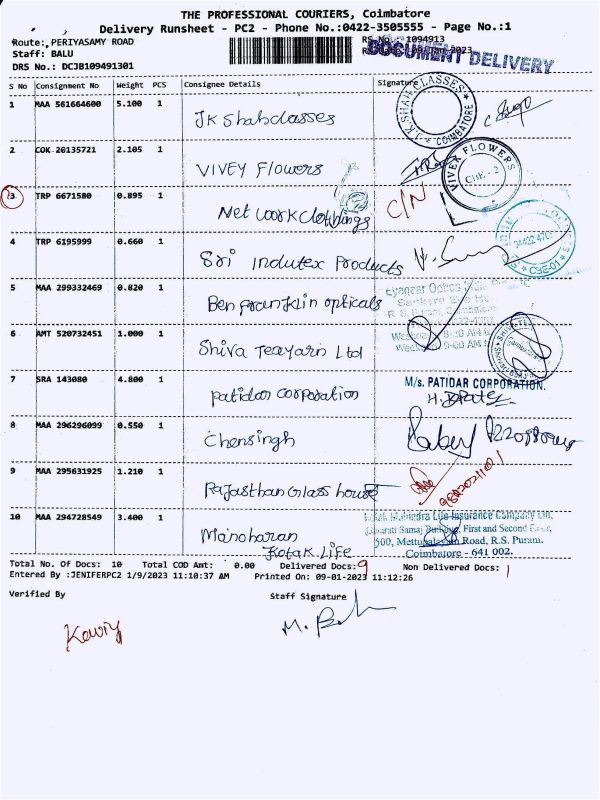 THE PROFESSIONAL COURIERS, Coimbatore
Delivery Runsheet - PC2 - Phone No.:0422-3505555 - Page No.:1
Route: PERIYASAMY ROAD
RS No.: 1094913
Staff: BALU
DOCUMENT DELIVERY
DRS No.: DCJB109491301
S No Consignment No Weight PCS Consignee Details Signature
1 MAA 561664600 5.100 1 JK Shahclasses
J.K. SHAH CLASSES COIMBATORE
2 COK 20135721 2.105 1 VIVEY Flowers
VIVEX FLOWERS CBE - 2
3 TRP 6671580 0.895 1 Net work clothings C/N
4 TRP 6195999 0.660 1 Sri Indutex Products
CBE-01
5 MAA 299332469 0.820 1 Ben franklin opticals
6 AMT 520732451 1.000 1 Shiva Texyarn Ltd
7 SRA 143080 4.800 1 patidar corporation
M/s. PATIDAR CORPORATION.
8 MAA 296296099 0.550 1 Chensingh
9 MAA 295631925 1.210 1 Rajasthan Glass house
10 MAA 294728549 3.400 1 Manoharan
Kotak Life
Kotak Mahindra Life Insurance Company Ltd,
Gujarati Samaj Building, First and Second Floor,
500, Mettupalayam Road, R.S. Puram.
Coimbatore - 641 002.
Total No. Of Docs: 10 Total COD Amt: 0.00 Delivered Docs: 9 Non Delivered Docs: 1
Entered By :JENIFERPC2 1/9/2023 11:10:37 AM Printed On: 09-01-2023 11:12:26
Verified By Staff Signature